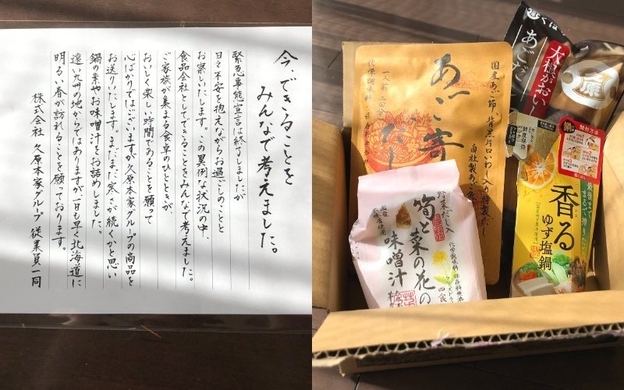 今、できることを
みんなで考えました。
緊急事態宣言は終了しましたが
日々不安を抱えながらお過ごしのことと
お察しいたします。この異例な状況の中、
食品会社としてできることをみんなで考えました。
ご家族が集まる食卓のひとときが、
おいしく楽しい時間であることを願って
心ばかりではございますが久原本家グループの商品を
お送りいたします。まだまだ寒さが続くかと思い
鍋の素やお味噌汁をお詰めしました。
遠い九州の地からではありますが一日も早く北海道に
明るい春が訪れることを願っております。
株式会社 久原本家グループ 従業員一同
国産あご節入り
あご寄
なし
筍と菜の花の
味噌汁
大根がおいしい
あごだし
原
香る
ゆず塩鍋